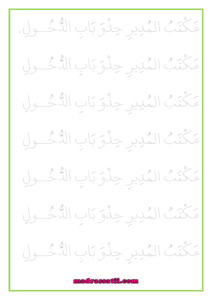 مَكْتَبُ المُدِيرِ حِذْوَ بَابِ الدُّخُـــولِ.
مَكْتَبُ المُدِيرِ حِذْوَ بَابِ الدُّخُـــولِ
مَكْتَبُ المُدِيرِ حِذْوَ بَابِ الدُّخُـــولِ
مَكْتَبُ المُدِيرِ حِذْوَ بَابِ الدُّخُـــولِ
مَكْتَبُ المُدِيرِ حِذْوَ بَابِ الدُّخُـــولِ
مَكْتَبُ المُدِيرِ حِذْوَ بَابِ الدُّخُـــولِ
مَكْتَبُ المُدِيرِ حِذْوَ بَابِ الدُّخُـــولِ
madrassatii.com